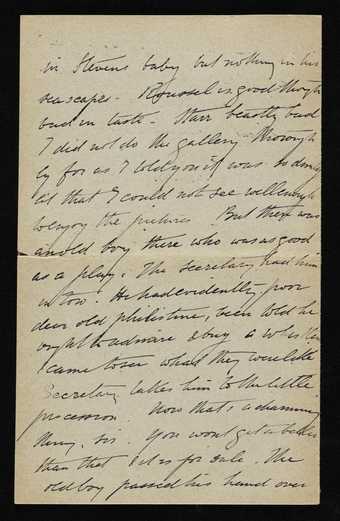 in Stevens baby but nothing in his
seascapes - Roussel is good though
bad in taste - Starr beastly bad
I did not do the gallery thorough
ly for as I told you it was so dam
at that I could not see well enough
to enjoy the pictures. But there was
an old boy there who was as good
as a play. The Secretary had him
in tow. He had evidently, poor
dear old philistine, been told he
ought to admire & buy a whistler
came to see what they would do
Secretary takes him to the little
procession Now that's a charming
thing, sir. You wont get a better
than that & it is for sale. The
old boy passed his hand over